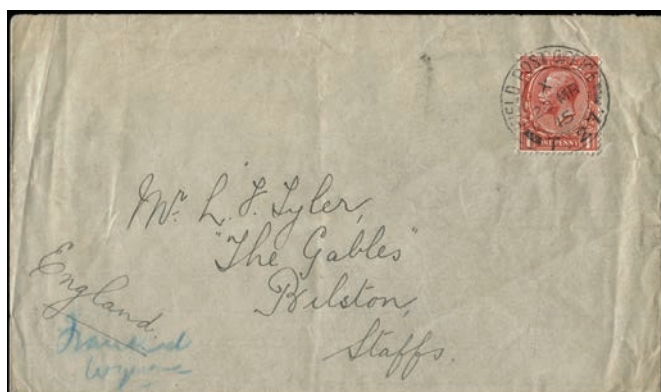 FIELD POST OFFICE
X
AP
15
T. 27.
ONE PENNY
Mr. L. F. Tyler,
"The Gables"
Bilston,
Staffs.
England